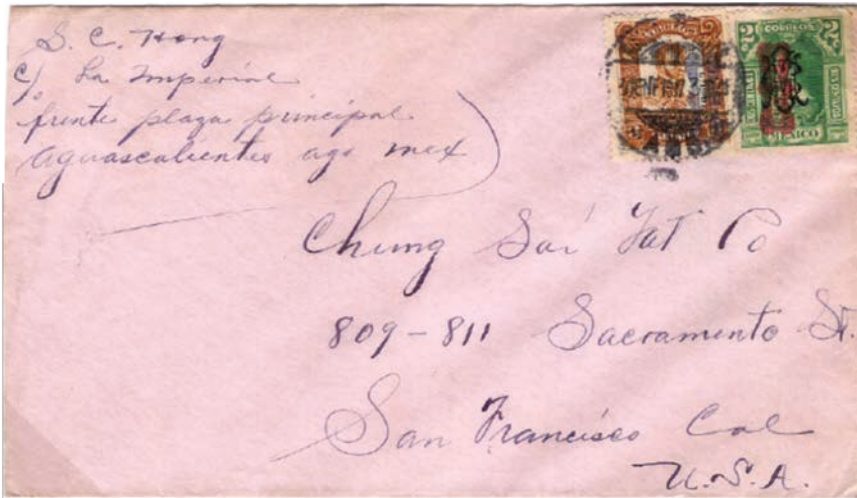 S. C. Hong
c/o La Imperial
frente plaza principal
aguascalientes ags mex
CORREOS
MEXICO
Chung Sai Yat Co
809-811 Sacramento St.
San Francisco Cal
U.S.A.